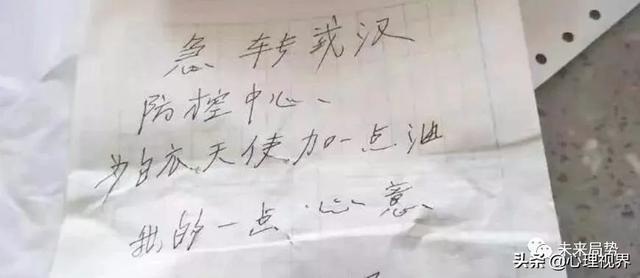 急转武汉
防控中心、
为白衣天使加一点油
我的一点心意
未来局势
头条 @心理视界